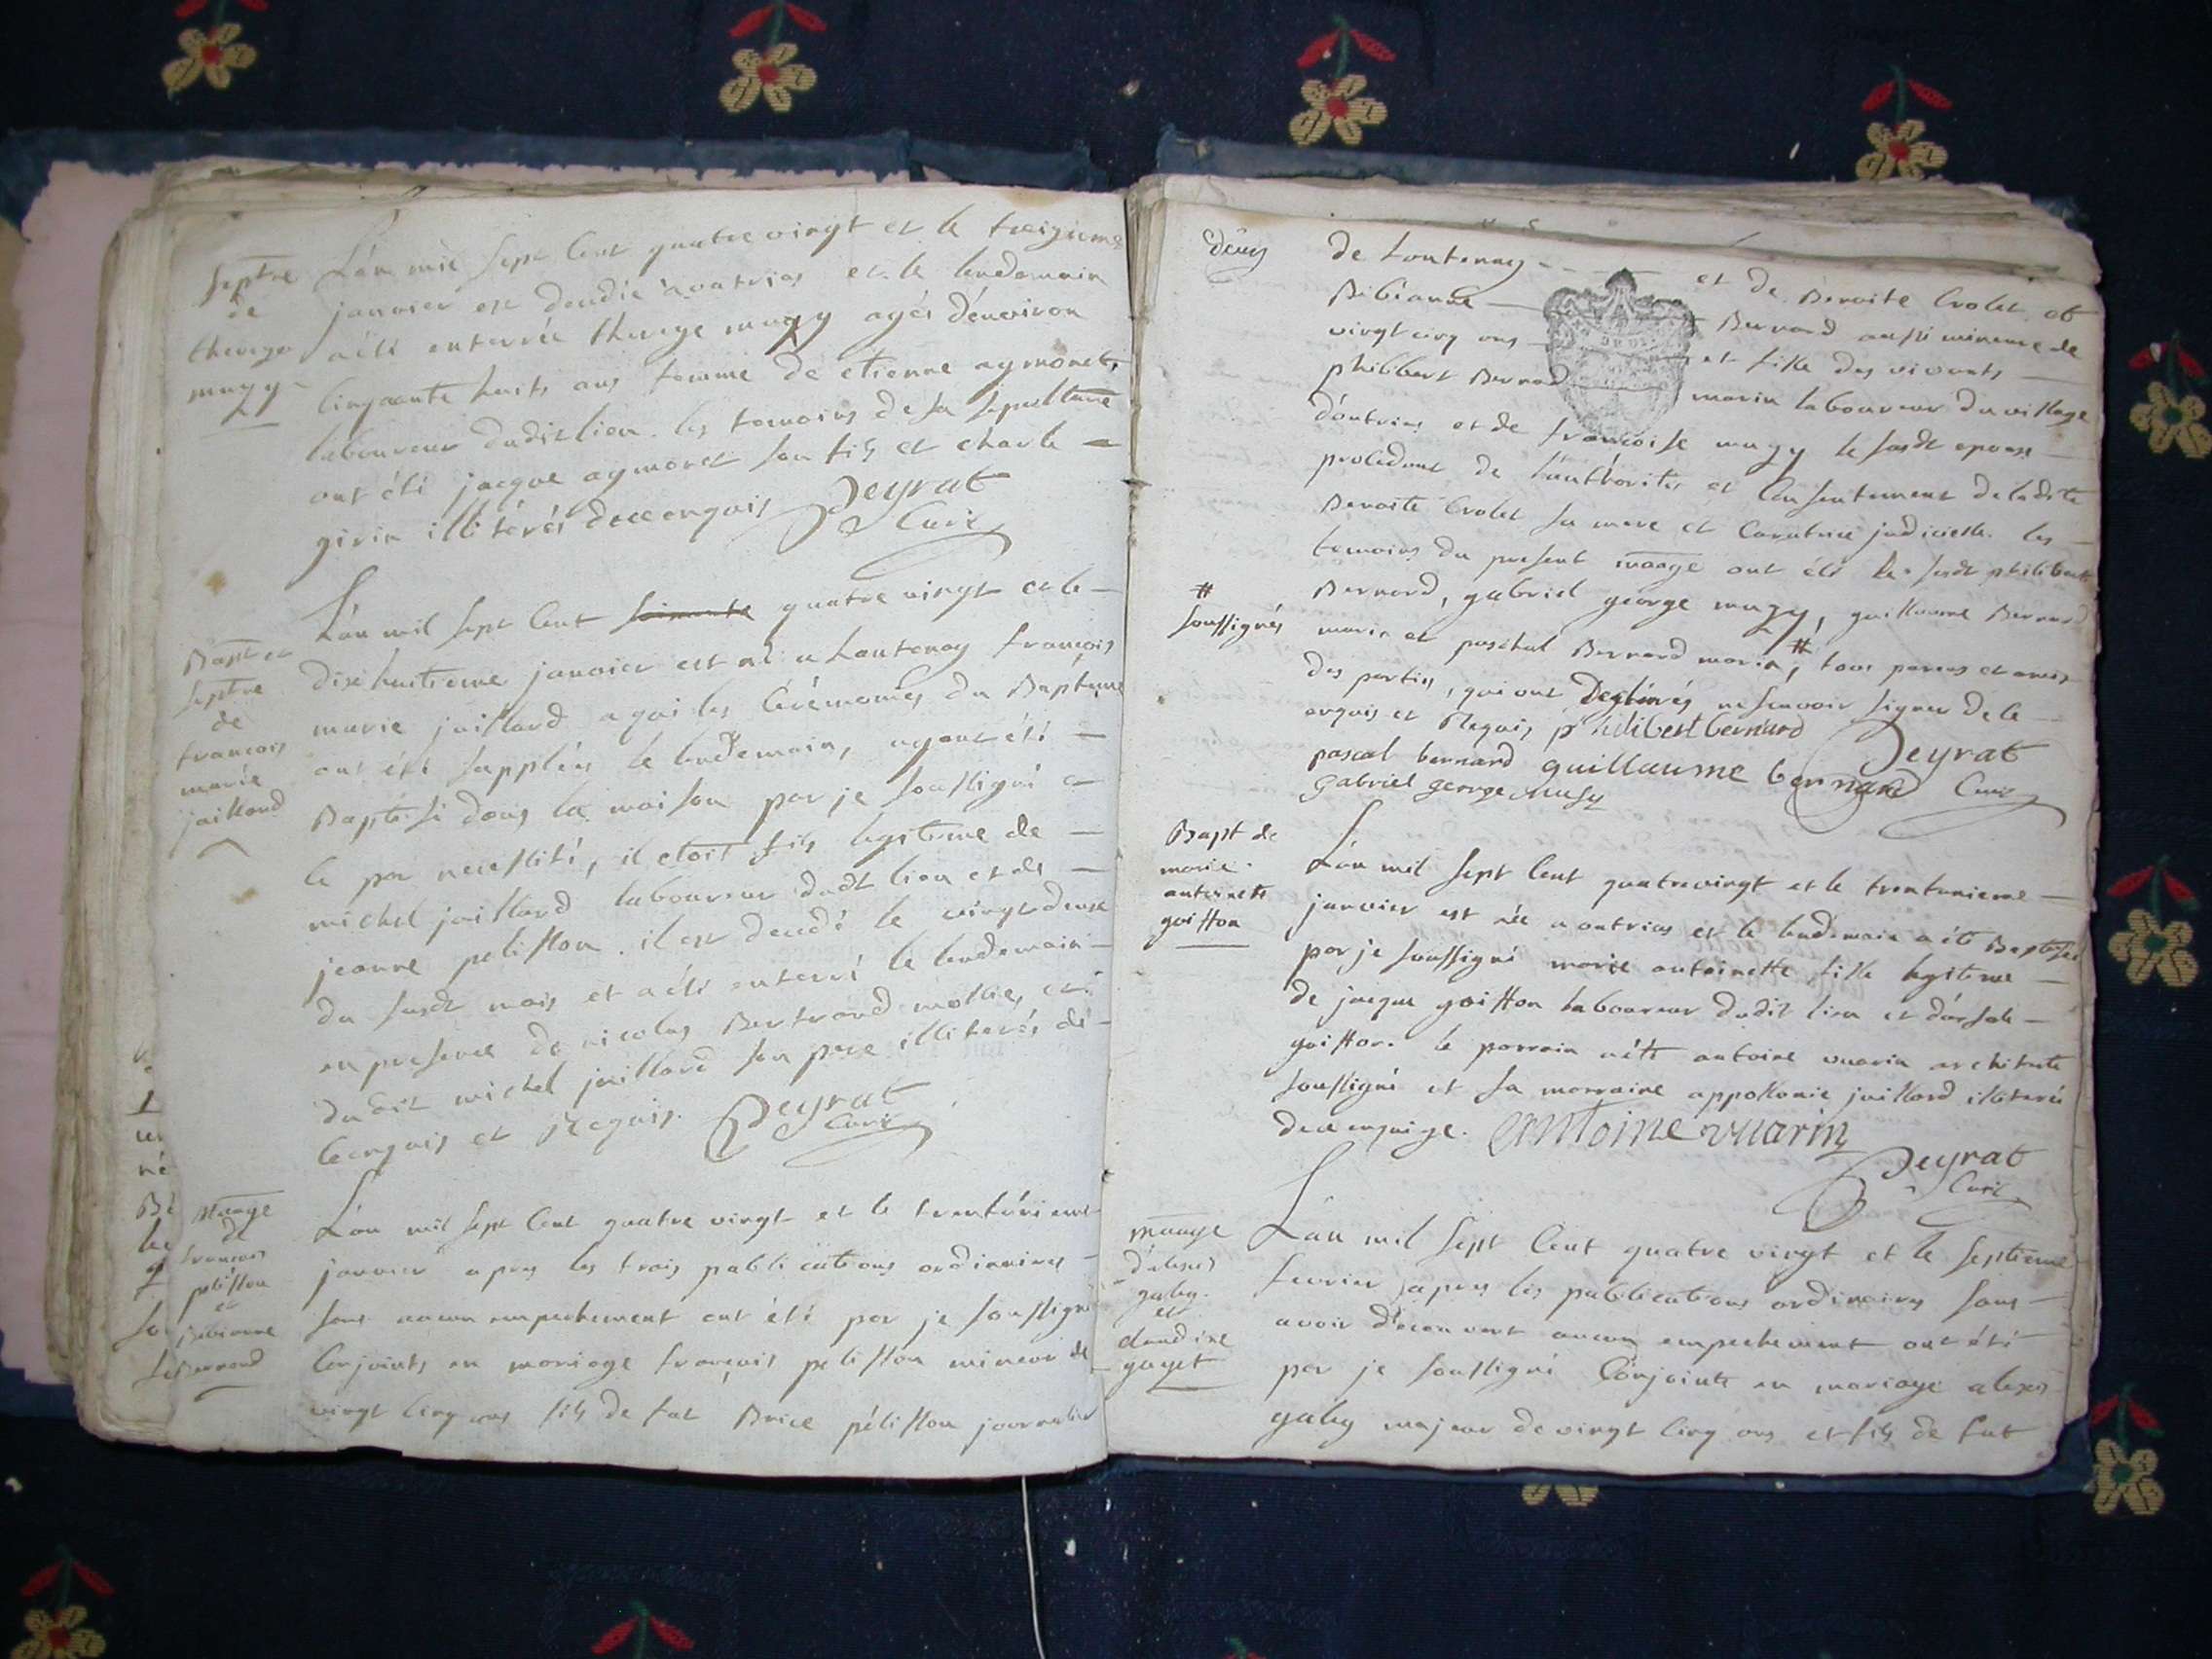 Septre
de
therese
mugy
L'an mil sept cent quatre vingt et le treizieme
janvier est decedée a outrias et le lendemain
a été enterrée therese mugy agés d'environ
cinquante huits ans femme de etienne aymonet
laboureur dudit lieu. les temoins de sa sepulture
ont été jacque aymonet son fils et charle
girin illitérés de ce enquis Deyrat
Curé
Bapt et
Septre
de
francois
marie
jaillard
L'an mil sept cent soixante quatre vingt et le
dixhuitieme janvier est né a Lantenay françois
marie jaillard a qui les Cérémonies du Baptême
ont été supplées le lendemain, ayant été
Baptisé dans la maison par je soussigné
le par necessité, il etoit fils legitime de
michel jaillard laboureur dudt lieu et de
jeanne pelisson. il est decedé le vingt deux
du susdt mois et a été enterré le lendemain
en presence de nicolas Bertrand mollie, et
dudit michel jaillard son pere illiterés de
ce enquis et Requis. Deyrat
Curé
Mange
de
francois
pelisson
et
pibianne
Bernard
L'an mil sept cent quatre vingt et le trentunieme
janvier apres les trois publications ordinaires
sans aucun empechement ont été par je soussigné
Conjoints en mariage françois pelisson mineur de
vingt cinq ans fils de fut Brice pélisson journalier
deux
de Lantenay et de Benoite Crolet et
Bibianne Bernard aussi mineure de
vingt cinq ans et fille des vivants
philibert Bernard marin laboureur du village
d'outrias et de françoise mugy le susdt epoux
procedant de l'authorités et Consentement de ladite
Benoite Crolet sa mere et Curatrice judicielle. les
temoins du present maage ont été le susdt philibert
Bernard, gabriel george mugy, guillaume Bernard
# soussignés
marin et paschal Bernard marin, # tous parens et amis
des parties, qui ont Déclarés ne scavoir signer de ce
enquis et Requis, philibert bernard
pascal bernard guillaume bernard Deyrat
gabriel george musy Curé
Bapt de
marie
antoinette
goiffon
L'an mil sept cent quatrevingt et le trentunieme
janvier est née a outrias et le lendemain a été Baptisée
par je soussigné marie antoinette fille legitime
de jacque goiffon laboureur dudit lieu et d'ursule
goiffon. le parrain a été antoine vuarin architecte
soussigné et sa marraine appollonie jaillard illiterée
de ce enquise. antoine vuarin
Deyrat
Curé
Maage
d'alexis
galy
et
claudine
guyet
L'an mil sept cent quatre vingt et le septieme
fevrier apres les publications ordinaires sans
avoir découvert aucun empechement ont été
par je soussigné Conjoints en mariage alexis
galy majeur de vingt cinq ans et fils de fut